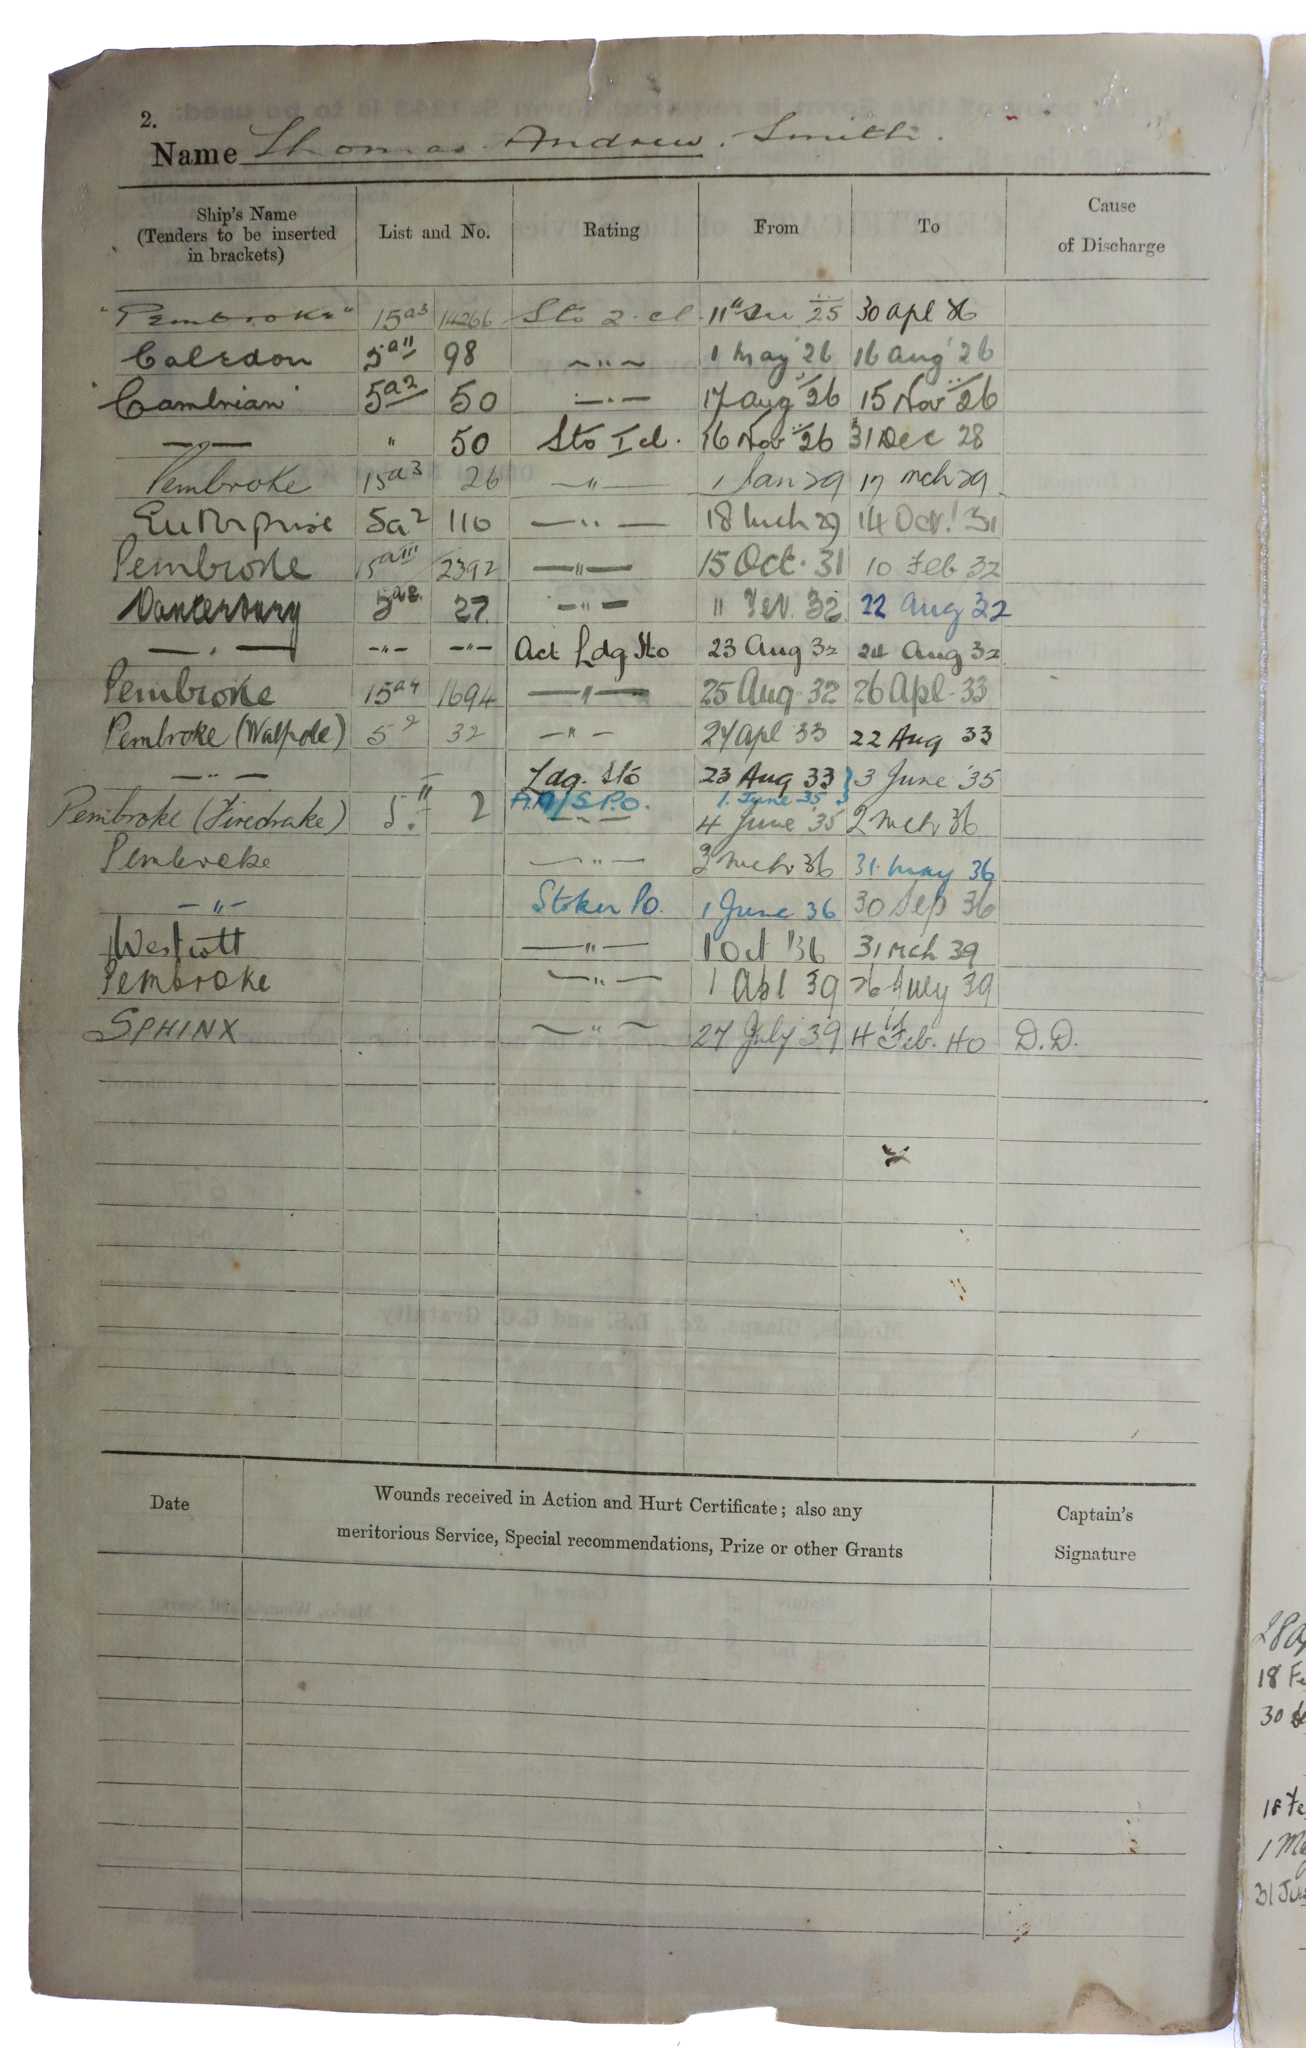 2.
Name Thomas Andrew Smith.
Ship's Name (Tenders to be inserted in brackets) List and No. Rating From To Cause of Discharge
"Pembroke" 15a3 14266 Sto 2. cl 11 25 30 Apl 26
Caledon 5a11 98 — " — 1 May 26 16 Aug 26
Cambrian 5a2 50 — " — 17 Aug 26 15 Nov 26
— " — " 50 Sto I cl. 16 Nov 26 31 Dec 28
Pembroke 15a3 26 — " — 1 Jan 29 17 Mch 29
Enterprise 5a2 110 — " — 18 Mch 29 14 Oct. 31
Pembroke 15aIII 2392 — " — 15 Oct. 31 10 Feb 32
5a2 27 — " — 11 Feb. 32 22 Aug 32
— " — -"- -"- Act Ldg Sto 23 Aug 32 24 Aug 32
Pembroke 15a4 1694 — " — 25 Aug 32 26 Apl. 33
Pembroke (Walpole) 5 2 32 — " — 27 Apl 33 22 Aug 33
— " — Ldg. Sto 23 Aug 33 } 3 June '35
A.A/S.P.O. 1. June 35
Pembroke (Firedrake) 5. II 2 — " — 4 June '35 2 Mch 36
Pembroke — " — 3 Mch 36 31. May 36
— " — Stoker PO. 1 June 36 30 Sep 36
Westcott — " — 1 Oct '36 31 Mch 39
Pembroke — " — 1 Apl 39 26 July 39
SPHINX — " — 27 July 39 4th Feb. 40 D.D.
Date Wounds received in Action and Hurt Certificate; also any meritorious Service, Special recommendations, Prize or other Grants Captain's Signature
18 Fe
30
1 Ma
31